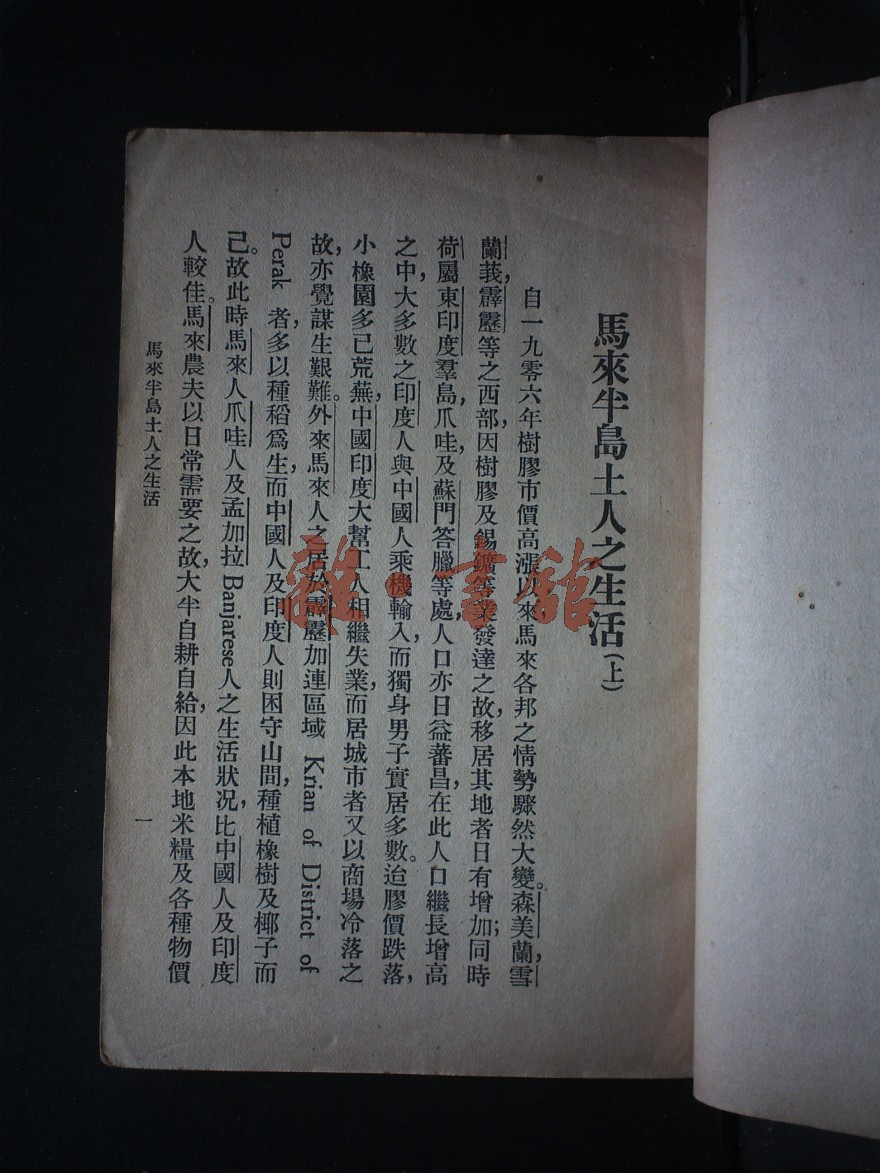 馬來半島土人之生活（上）
自一九零六年樹膠市價高漲以來，馬來各邦之情勢驟然大變。森美蘭，雪
蘭莪，霹靂等之西部，因樹膠及錫鑛等業發達之故，移居其地者日有增加；同時
荷屬東印度羣島，爪哇，及蘇門答臘等處，人口亦日益蕃昌，在此人口繼長增高
之中，大多數之印度人與中國人乘機輸入，而獨身男子實居多數。迨膠價跌落，
小橡園多已荒蕪，中國印度大幫工人相繼失業，而居城市者又以商場冷落之
故，亦覺謀生艱難。外來馬來人之居於霹靂加連區域 Krian of District of
Perak 者，多以種稻爲生，而中國人及印度人則困守山間，種植橡樹及椰子而
已。故此時馬來人爪哇人及孟加拉 Banjarese 人之生活狀況，比中國人及印度
人較佳。馬來農夫以日常需要之故，大半自耕自給，因此本地米糧及各種物價
馬來半島土人之生活
一
雜·書館